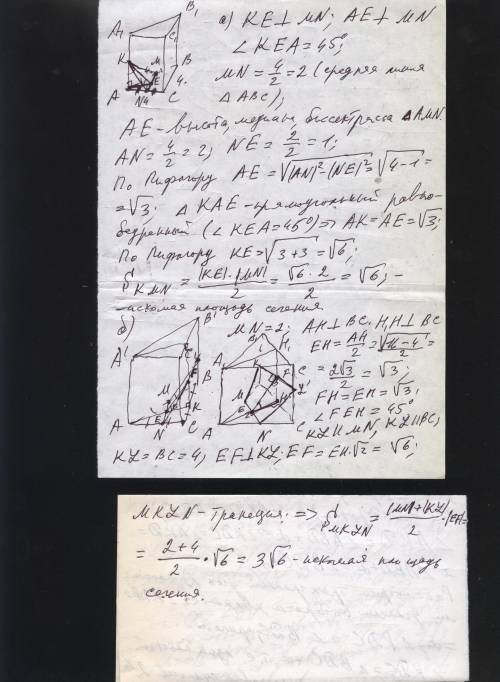 а) KE ⊥ MN; AE ⊥ MN
∠KEA = 45°;
MN = 4/2 = 2 (средняя линия
△ABC);
AE - высота, медиана, биссектриса △AMN.
AN = 4/2 = 2; NE = 2/2 = 1;
По Пифагору AE = √(|AN|² - |NE|²) = √(4-1) =
= √3. △KAE - прямоугольный равно-
бедренный (∠KEA = 45°) ⇒ AK = AE = √3;
По Пифагору KE = √(3+3) = √6;
S KMN = |KE|·|MN|/2 = √6·2/2 = √6; -
- искомая площадь сечения.
б)
MN = 2; AH ⊥ BC. H₁H ⊥ BC
EH = AH/2 = √(16-4)/2 =
= 2√3/2 = √3;
FH = EH = √3;
∠FEH = 45°
KL ∥ MN, KL ∥ BC,
KL = BC = 4, EF ⊥ KL; EF = EH·√2 = √6;
MKLN - трапеция. ⇒ S MKLN = (|MN|+|KL|)/2 · |EF| =
= (2+4)/2 · √6 = 3√6 - искомая площадь
сечения.